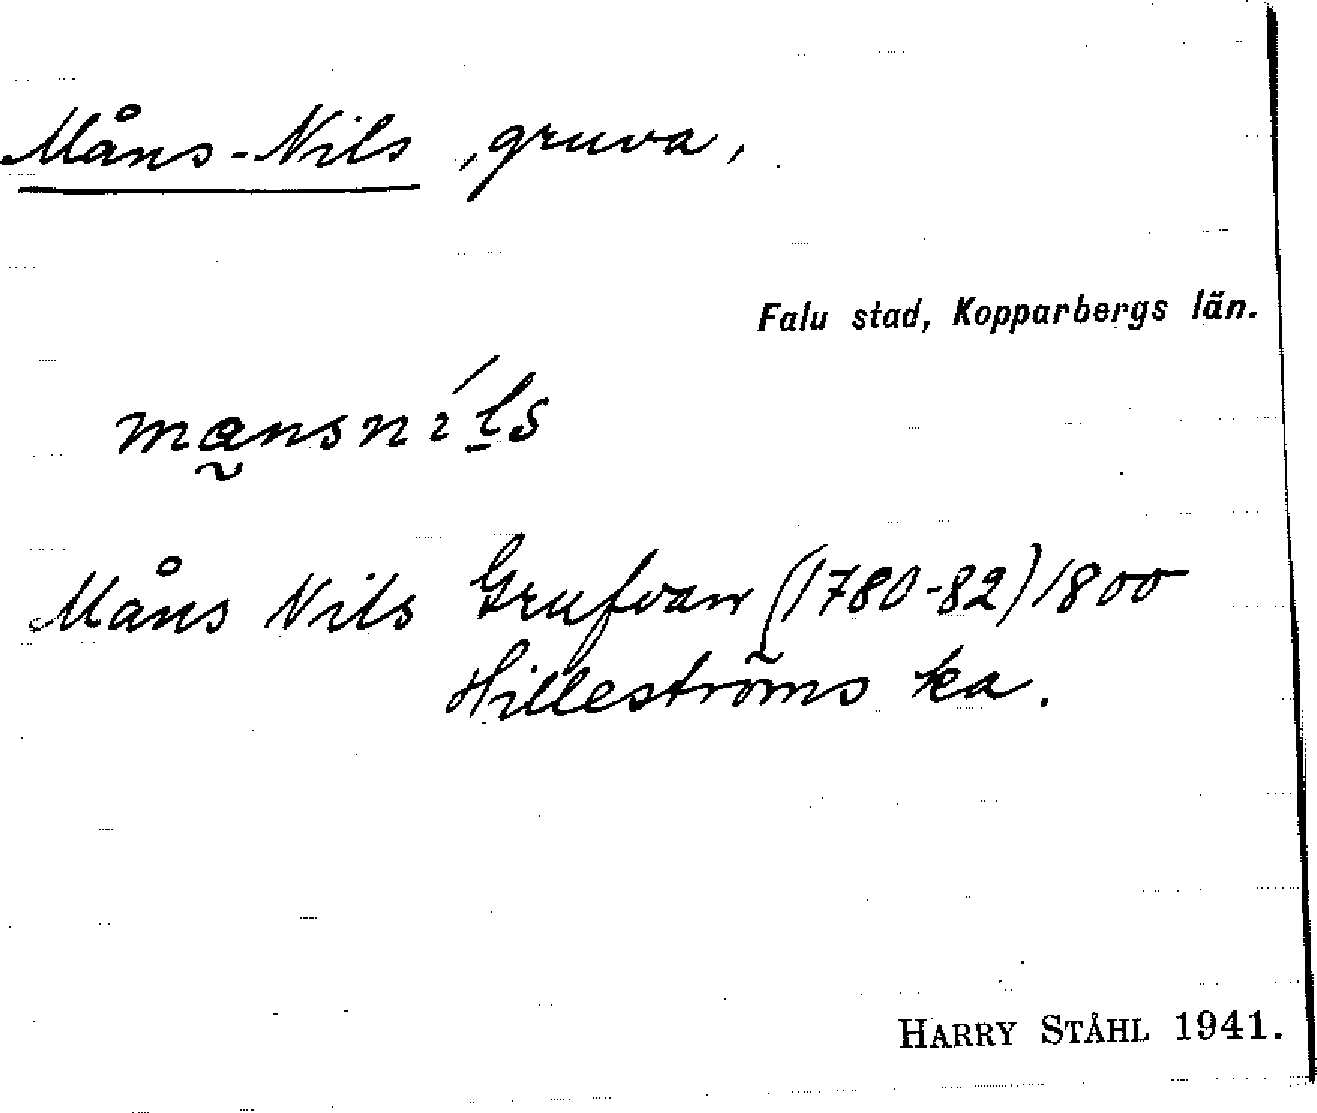 Måns-Nils, gruva,
Falu stad, Kopparbergs län.
mansníls
Måns Nils Grufvan (1780-82) 1800
Hilleströms ka.
HARRY STÅHL 1941.